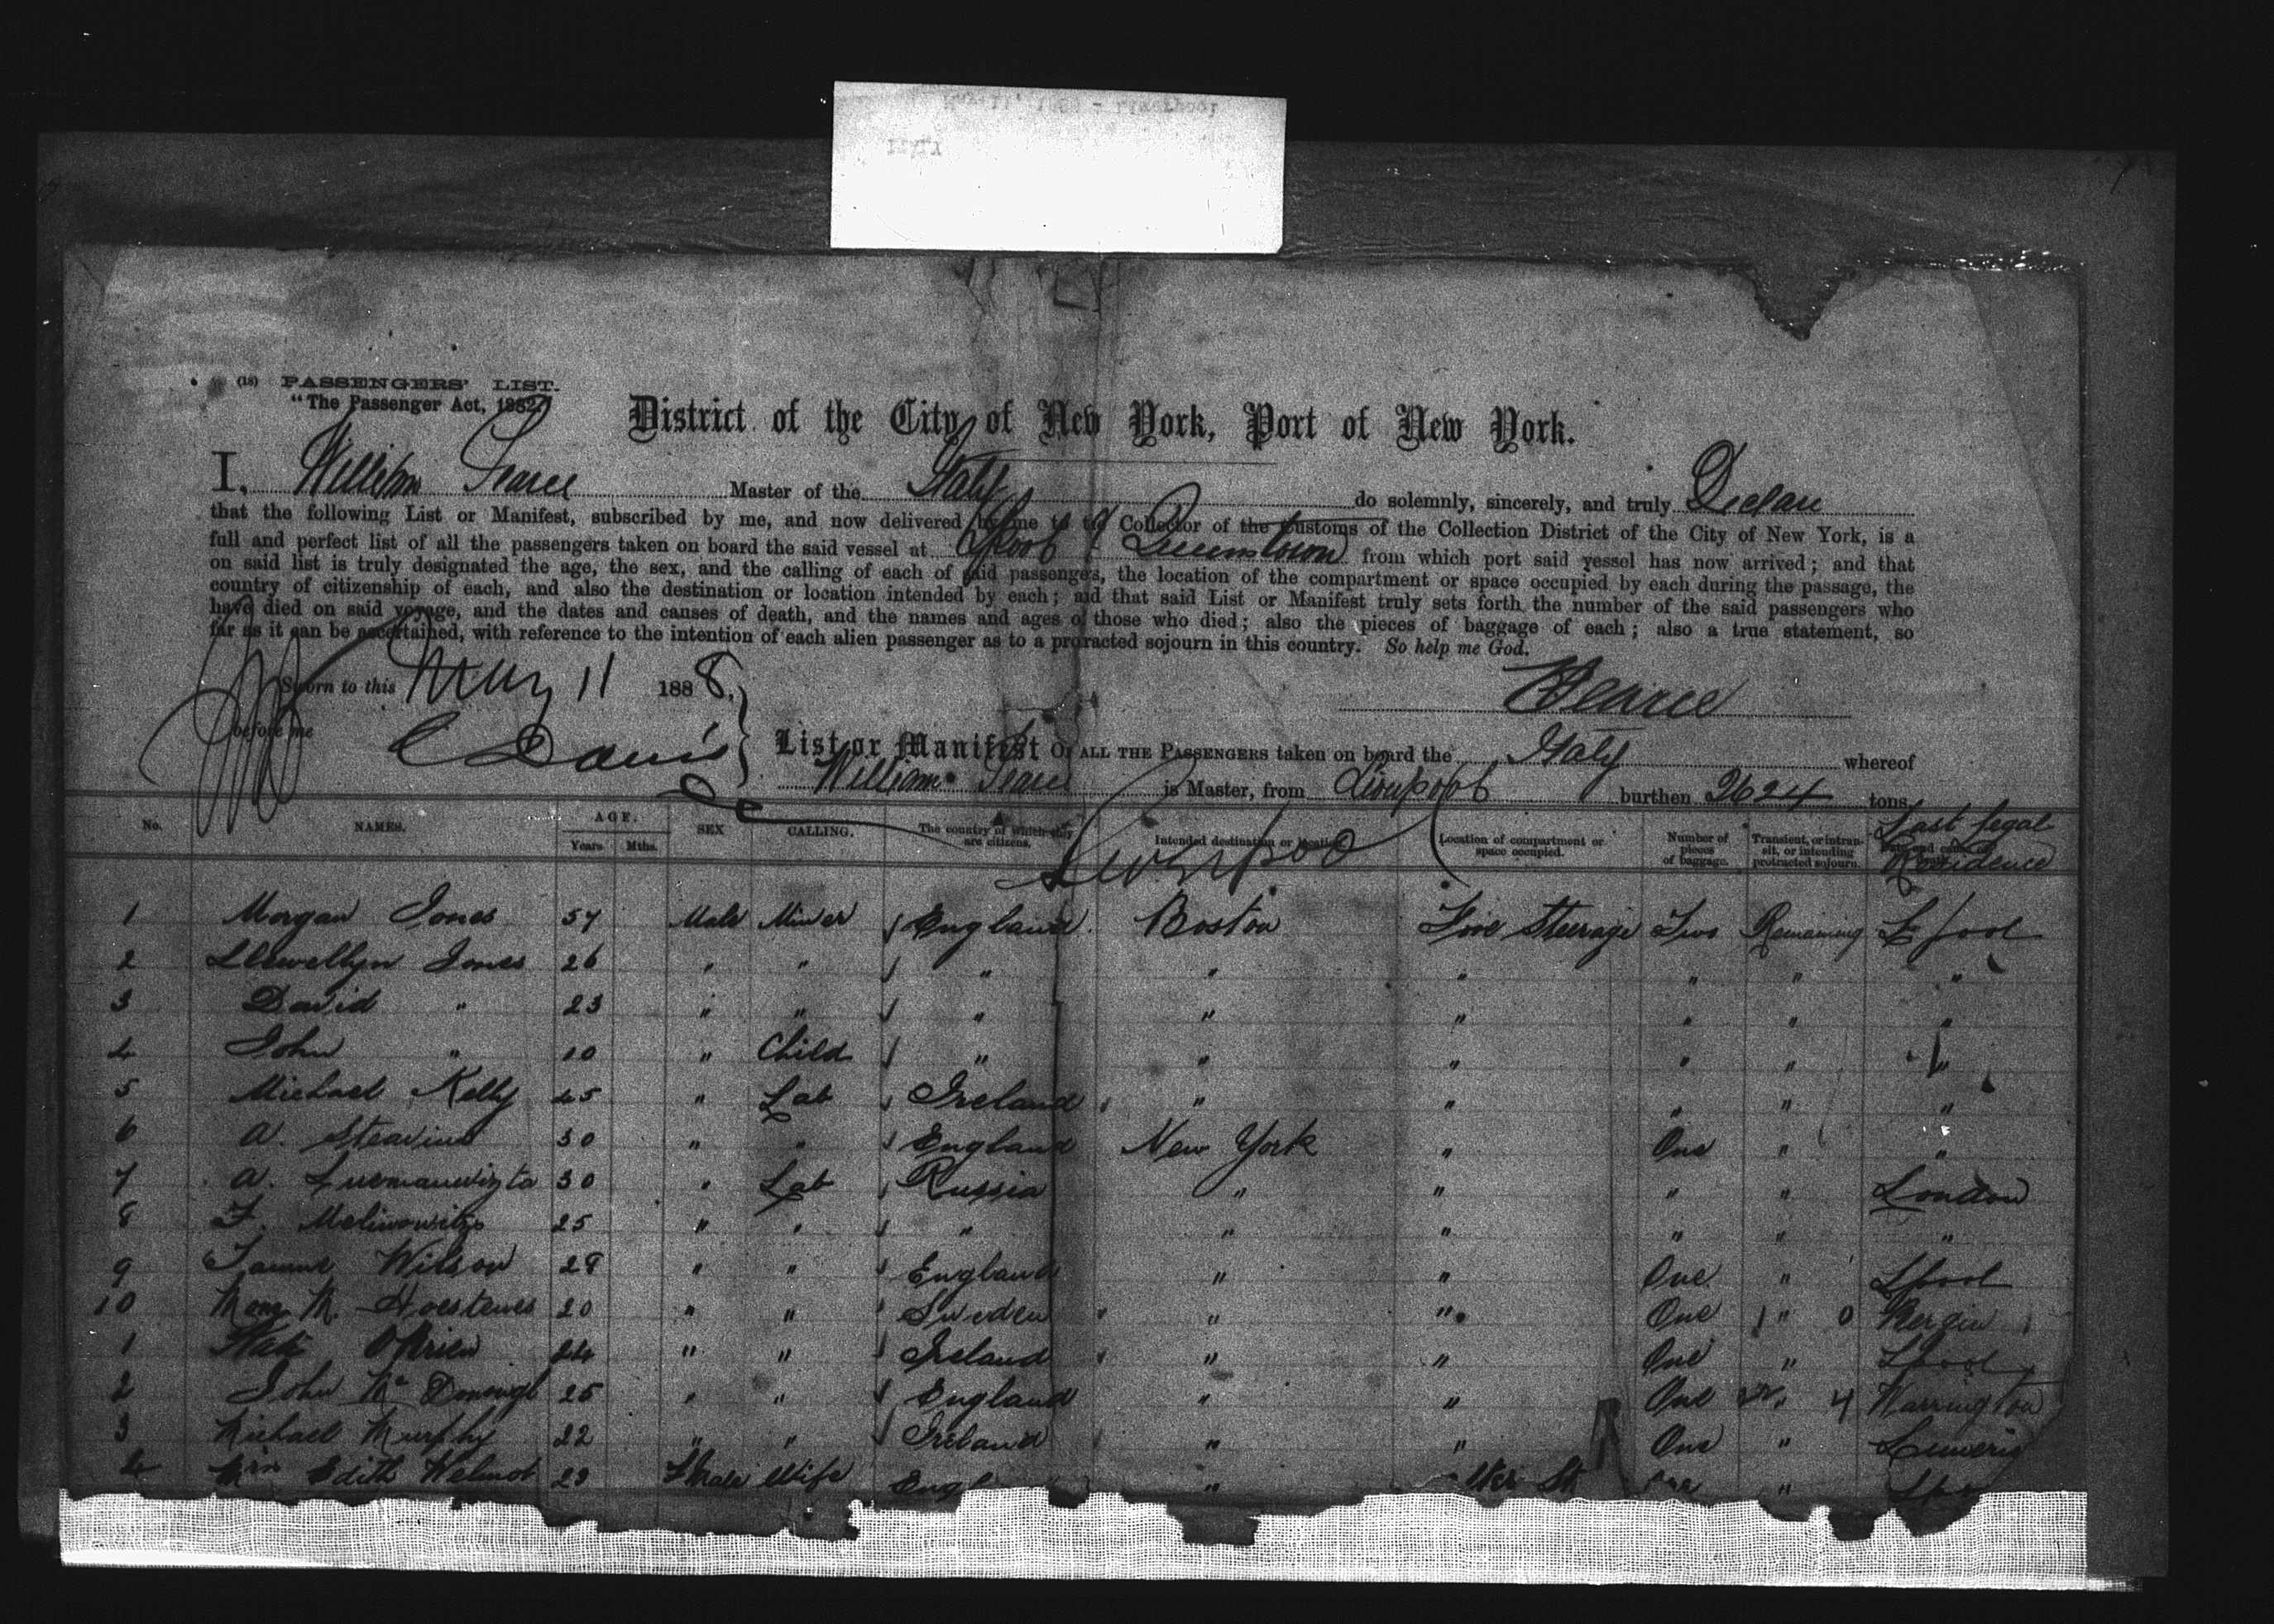 (18) PASSENGERS' LIST.
"The Passenger Act, 1882."
District of the City of New York, Port of New York.
I, William Pearce Master of the Italy do solemnly, sincerely, and truly Declare
that the following List or Manifest, subscribed by me, and now delivered by me to the Collector of the Customs of the Collection District of the City of New York, is a
full and perfect list of all the passengers taken on board the said vessel at Lpool & Queenstown from which port said vessel has now arrived; and that
on said list is truly designated the age, the sex, and the calling of each of said passengers, the location of the compartment or space occupied by each during the passage, the
country of citizenship of each, and also the destination or location intended by each; and that said List or Manifest truly sets forth the number of the said passengers who
have died on said voyage, and the dates and causes of death, and the names and ages of those who died; also the pieces of baggage of each; also a true statement, so
far as it can be ascertained, with reference to the intention of each alien passenger as to a protracted sojourn in this country. So help me God.
Sworn to this May 11 1888.
Pearce
before me C Davis
List or Manifest OF ALL THE PASSENGERS taken on board the Italy whereof
William Pearce is Master, from Liverpool burthen 2624 tons
No. NAMES. AGE. Years Mths. SEX CALLING. The country of which they are citizens. Intended destination or location Location of compartment or space occupied. Number of pieces of baggage. Transient, or in transit, or intending protracted sojourn. Last Legal Residence
Liverpool
1 Morgan Jones 57 Male Miner England Boston Fore Steerage Two Remaining Lpool
2 Llewellyn Jones 26 " " " " " " " "
3 David " 23 " " " " " " " "
4 John " 10 " Child " " " " " "
5 Michael Kelly 45 " Lab Ireland " " " " "
6 A. 30 " " England New York " One " "
7 A. 30 " Lab Russia " " " " London
8 F. 25 " " " " " " " "
9 Wilson 28 " " England " " One " Lpool
10 M. 20 " " Sweden " " One " 0
1 Kate OBrien 24 " " Ireland " " One " Lpool
2 John Mc Donough 25 " " England " " One " 4 Warrington
3 Michael Murphy 22 " " Ireland " " One "
4 Mrs Edith 23 Wife Engl " St One "